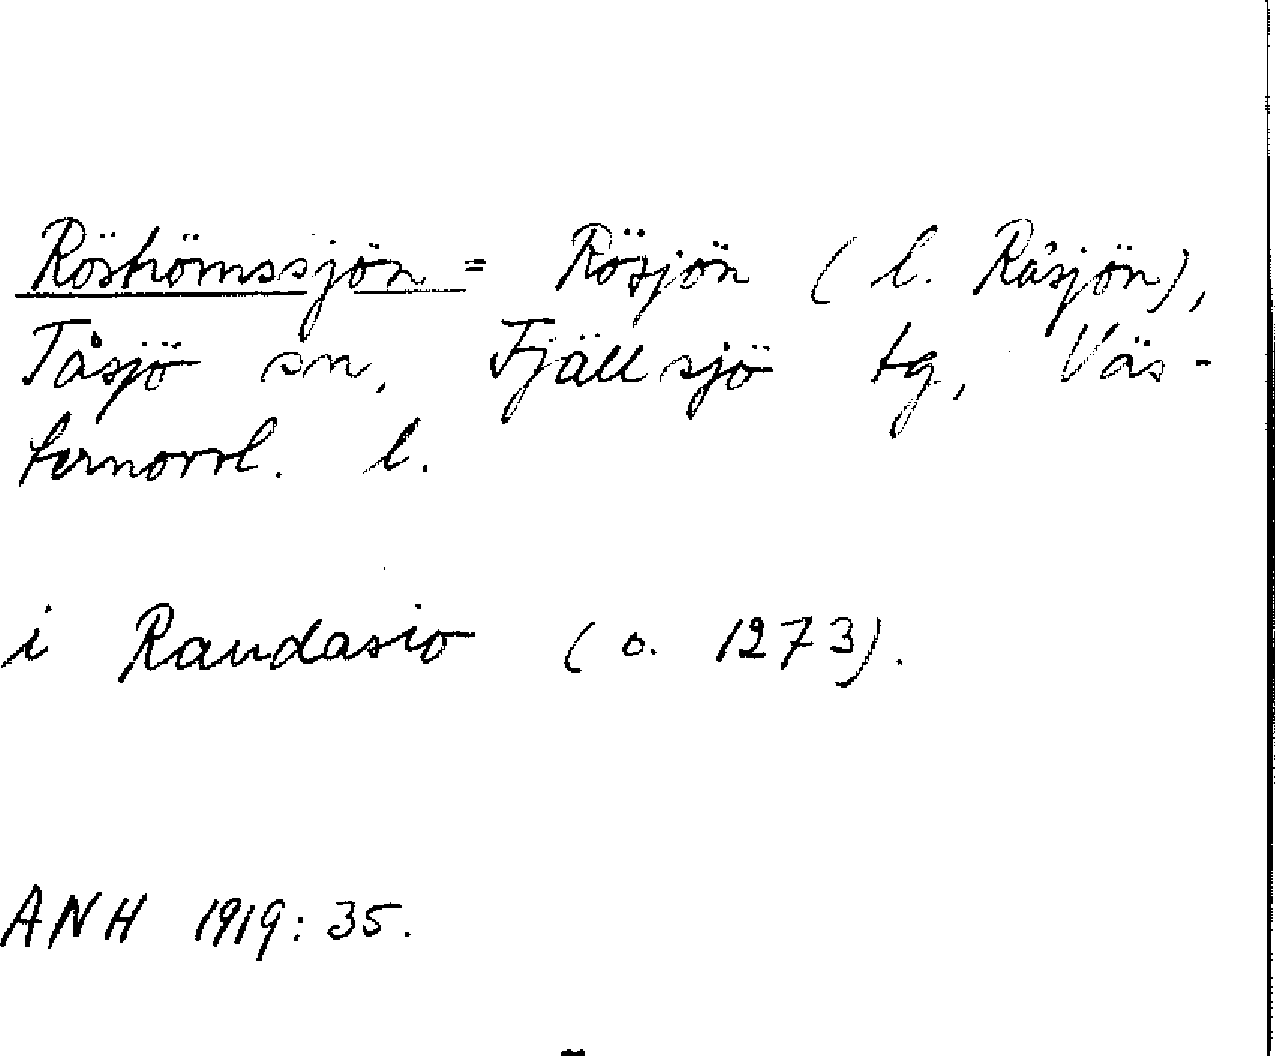 Röströmssjön = Rösjön ( l. Råsjön),
Tåsjö sn, Fjällsjö tg, Väs-
ternorrl. l.
i Raudasio ( o. 1273).
ANH 1919: 35.